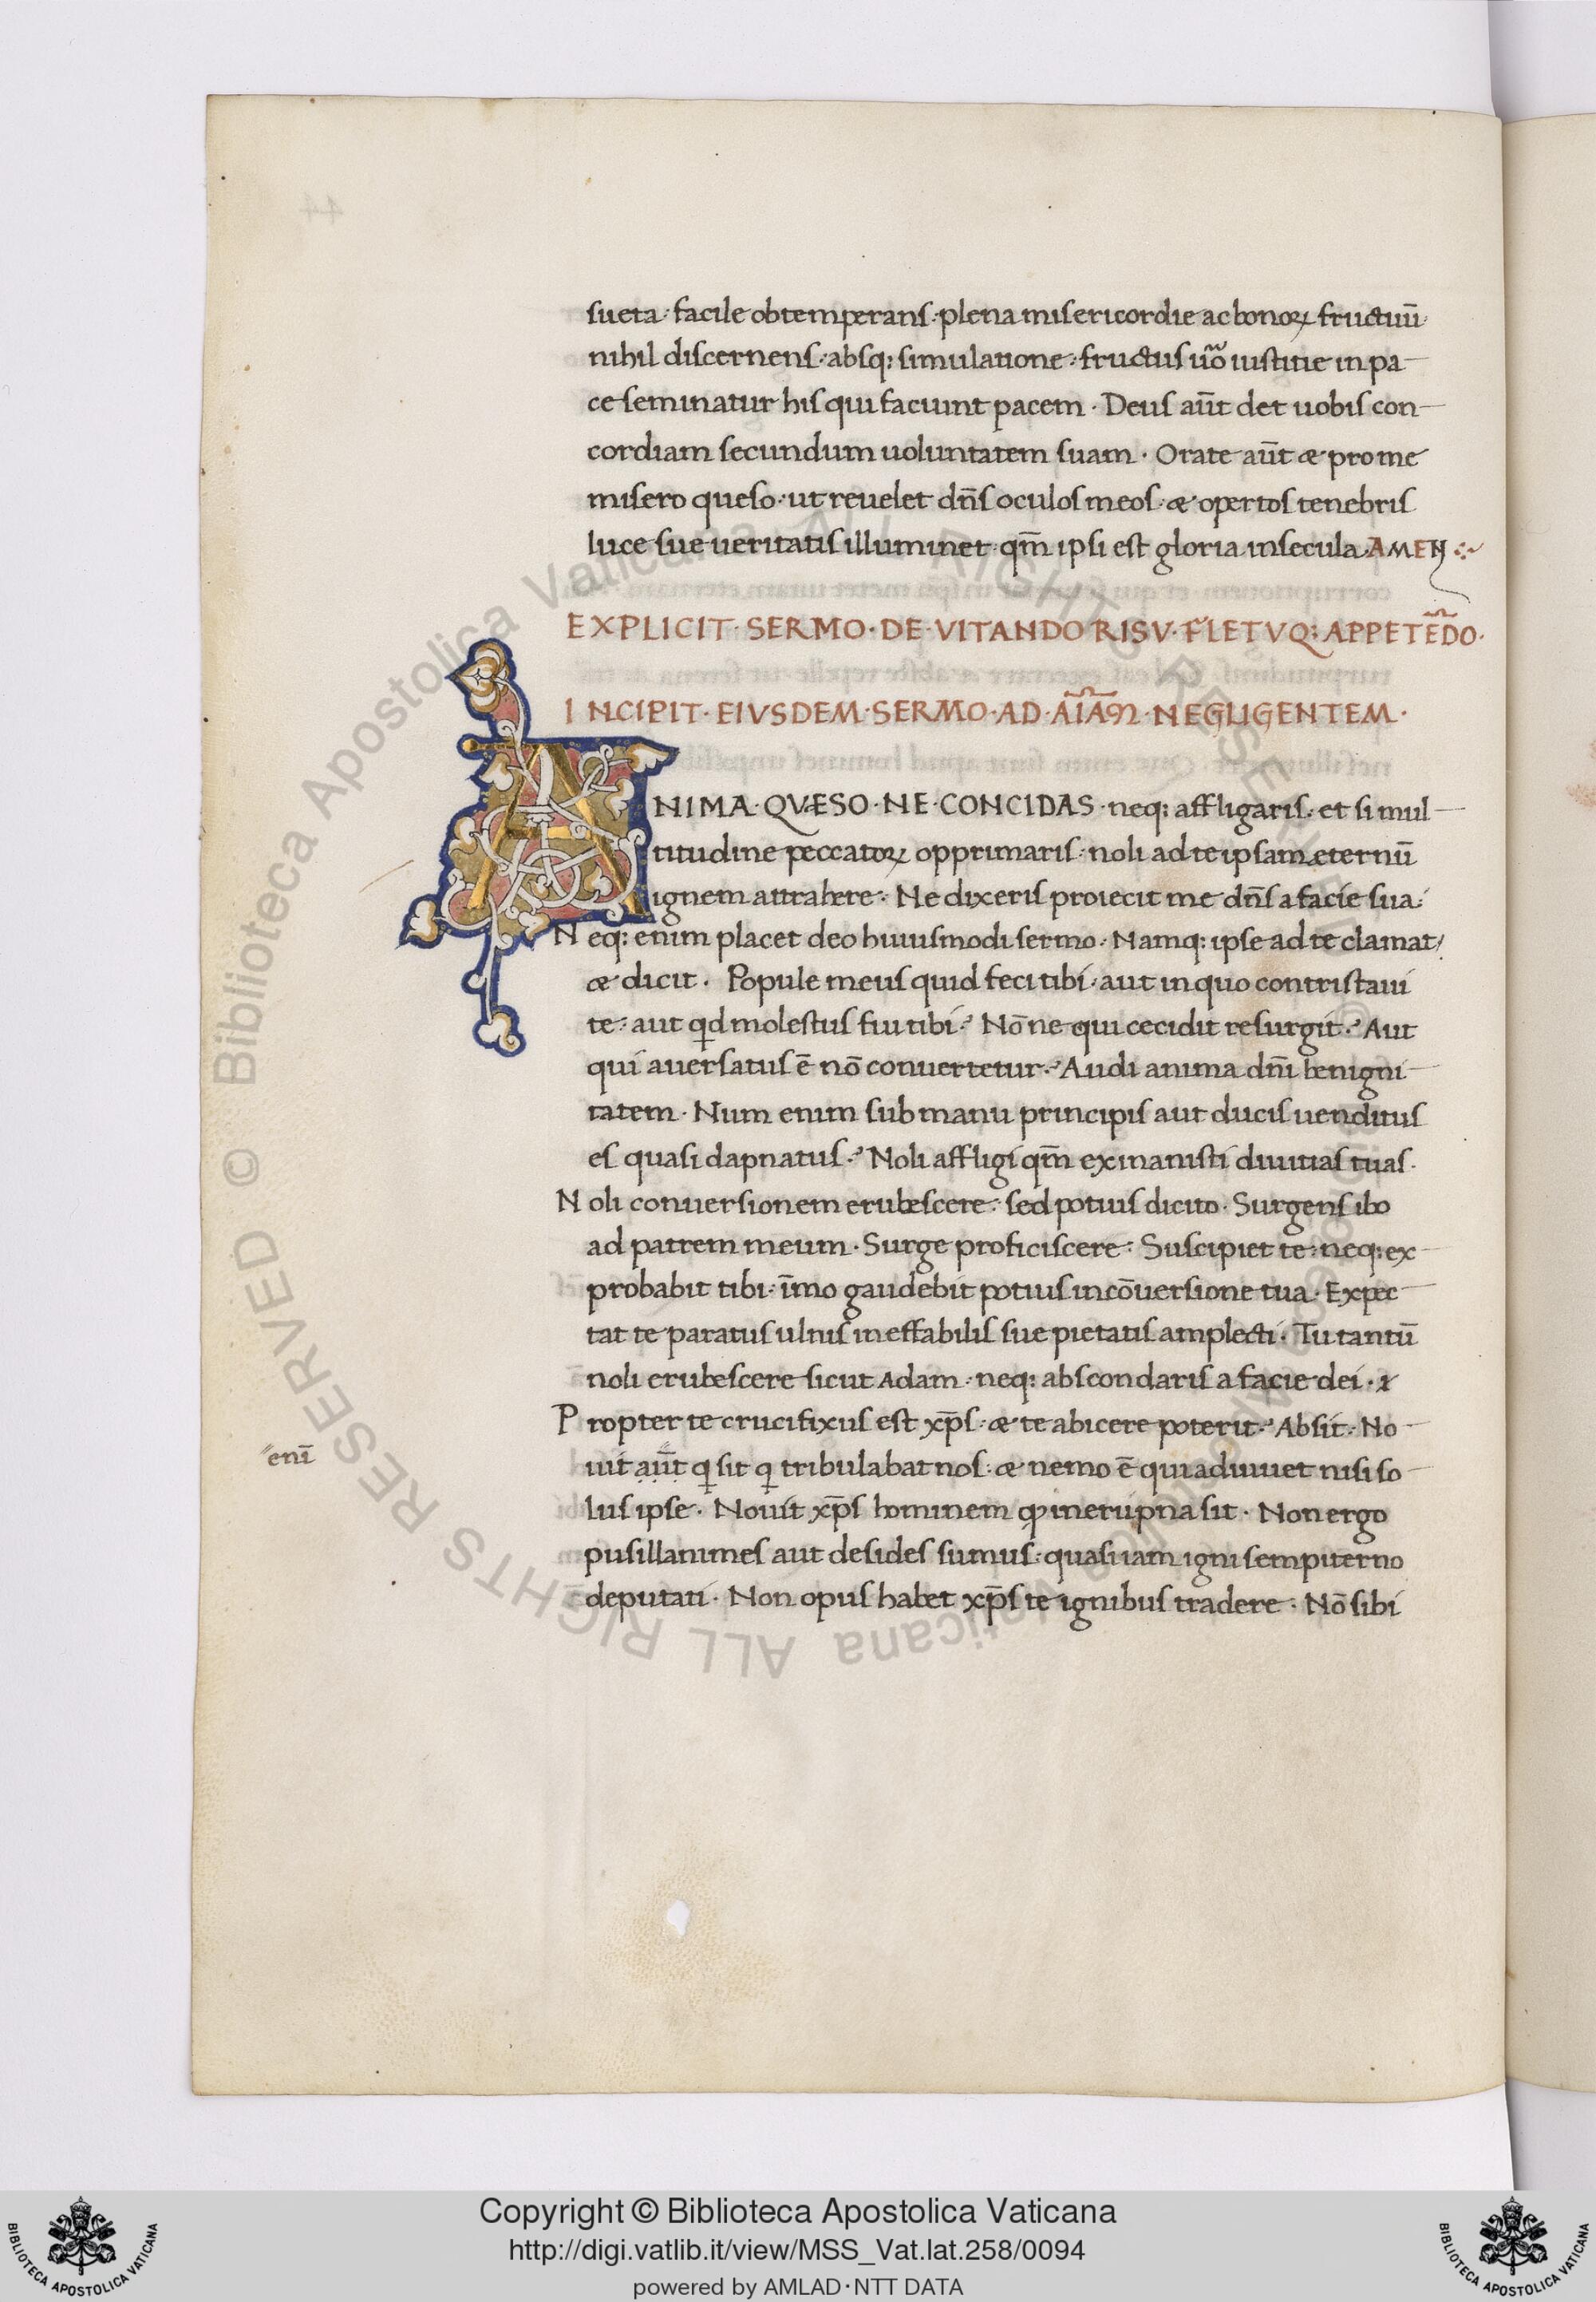 sueta· facile obtemperans· plena misericordie ac bonoꝝ fructuū·
nihil discernens· absq: simulatione· fructus u͞o iustitie in pa-
ce seminatur his qui faciunt pacem · Deus aūt det uobis con-
cordiam secundum uoluntatem suam · Orate aūt & pro me
misero queso· ut reuelet dn̄s oculos meos· & opertos tenebris
luce sue ueritatis illuminet· qm̄ ipsi est gloria in secula· AMEN
EXPLICIT· SERMO· DE· VITANDO RISV· FLETVQ: APPETĒDO·
INCIPIT· EIVSDEM· SERMO· AD· AĪAM· NEGLIGENTEM·
ANIMA· QVÆSO· NE· CONCIDAS· neq: affligaris· et si mul-
titudine peccatoꝝ opprimaris· noli ad te ipsam eternū
ignem attrahere· Ne dixeris proiecit me dn̄s a facie sua·
Neq: enim placet deo huiusmodi sermo· Namq: ipse ad te clamat/
& dicit · Popule meus quid feci tibi· aut in quo contristaui
te· aut qd molestus fui tibi? Nō ne qui cecidit resurgit? Aut
qui auersatus ē nō conuertetur? Audi anima dn̄i benigni-
tatem · Num enim sub manu principis aut ducis uenditus
es quasi dapnatus? Noli affligi qm̄ exinanisti diuitias tuas·
Noli conuersionem erubescere· sed potius dicito· Surgens ibo
ad patrem meum · Surge proficiscere· Suscipiet te· neq: ex-
probabit tibi· īmo gaudebit potius in cōuersione tua · Expec-
tat te paratus ulnis ineffabilis sue pietatis amplecti· Tu tantū
noli erubescere sicut Adam· neq: abscondaris a facie dei ·
Propter te crucifixus est xp̄s· & te abicere poterit? Absit· No-
enī
uit aūt q sit q tribulabat nos· & nemo ē qui adiuuet nisi so-
lus ipse · Nouit xp̄s hominem ꝙ in erūpna sit · Non ergo
pusillanimes aut desides sumus· quasi iam igni sempiterno
deputati · Non opus habet xp̄s te ignibus tradere · Nō sibi
Copyright © Biblioteca Apostolica Vaticana
http://digi.vatlib.it/view/MSS_Vat.lat.258/0094
powered by AMLAD·NTT DATA
BIBLIOTECA APOSTOLICA VATICANA
BIBLIOTECA APOSTOLICA VATICANA
© Biblioteca Apostolica Vaticana ALL RIGHTS RESERVED © Biblioteca Apostolica Vaticana ALL RIGHTS RESERVED
44